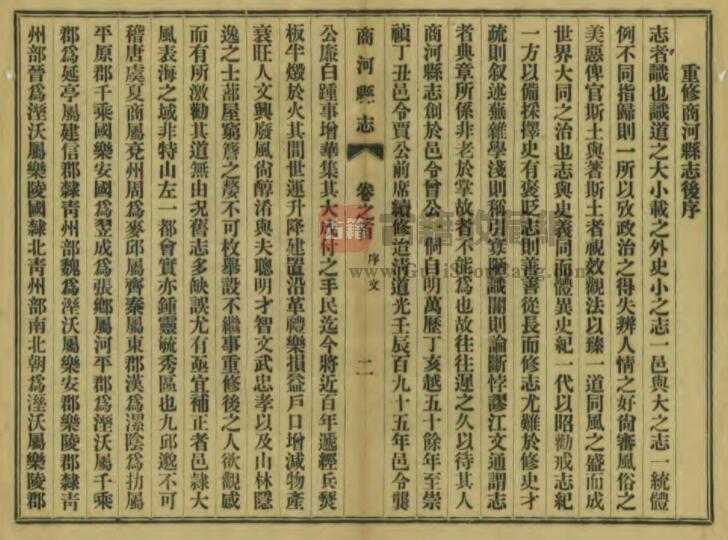 重修商河縣志後序
志者識也識道之大小載之外史小之志一邑與大之志一統體
例不同指歸則一所以攷政治之得失辨人情之好尙審風俗之
美惡俾官斯土與著斯土者視效觀法以臻一道同風之盛而成
世界大同之治也志與史義同而體異史紀一代以昭勸戒志紀
一方以備採擇史有褒貶志則善善從長而修志尤難於修史才
疏則叙述蕪雜學淺則稱引寡陋識闇則論斷悖謬江文通謂志
者典章所係非老於掌故者不能爲也故往往遲之久以待其人
商河縣志創於邑令曾公一侗自明萬歷丁亥越五十餘年至崇
禎丁丑邑令賈公前席續修迨淸道光壬辰百九十五年邑令龔
商河縣志
卷之首
序文
二
公廉白踵事增華集其大成付之手民迄今將近百年遞經兵燹
板半燬於火其間世運升降建置沿革禮樂損益戶口增減物產
衰旺人文興廢風尙醇淆與夫聰明才智文武忠孝以及山林隱
逸之士蔀屋窮簷之嫠不可枚舉設不繼事重修後之人欲觀感
而有所激勸其道無由況舊志多缺誤尤有亟宜補正者邑隸大
風表海之域非特山左一都會實亦鍾靈毓秀區也九邱邈不可
稽唐虞夏商屬兗州周爲麥邱屬齊秦屬東郡漢爲漯陰爲朸屬
平原郡千乘國樂安國爲翟成爲張鄉屬河平郡爲溼沃屬千乘
郡爲延亭屬建信郡隸靑州部魏爲溼沃屬樂安郡樂陵郡隸靑
州部晉爲溼沃屬樂陵國隸北靑州部南北朝爲溼沃屬樂陵郡
古籍